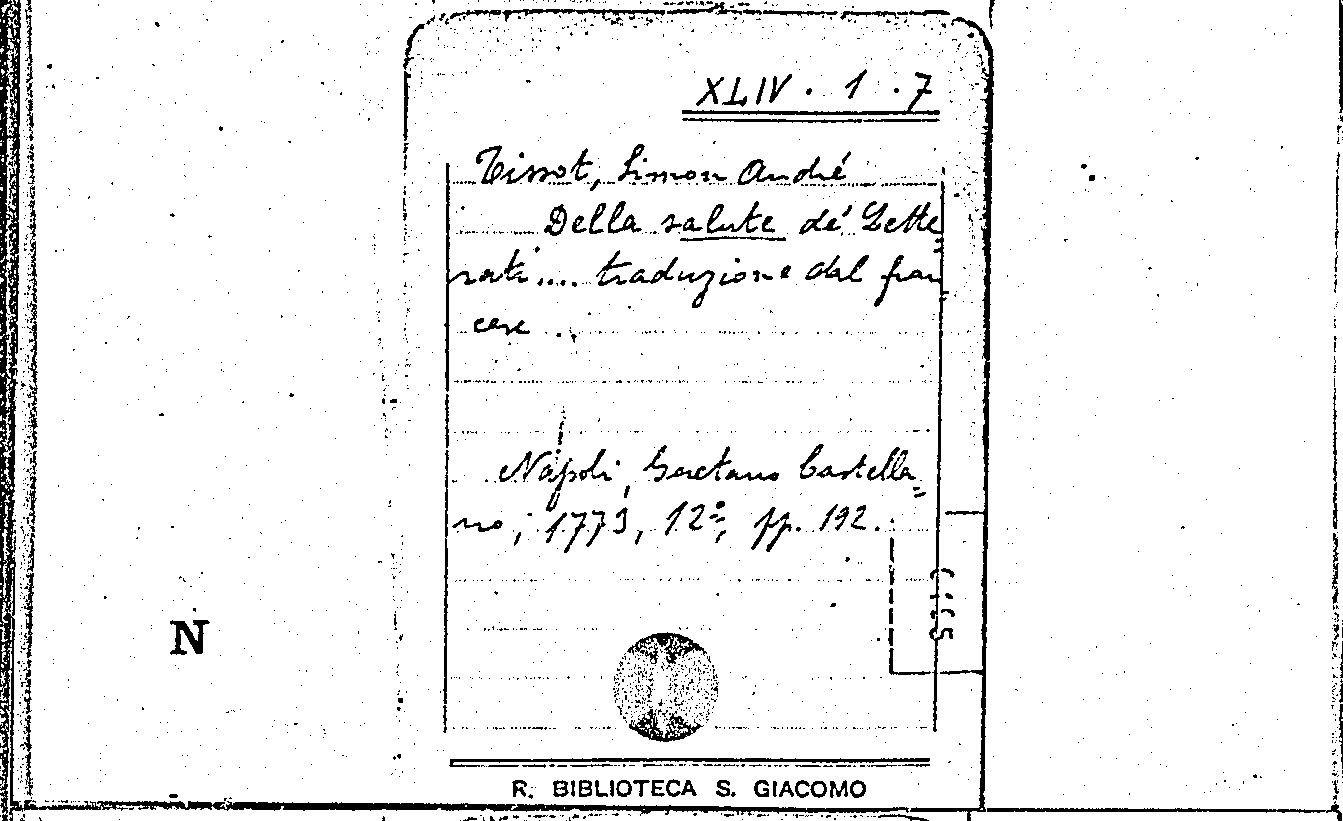 XLIV. 1. 7
Tissot, Simon André
Della salute de' Lette=
rati.... traduzione dal fran=
cese ..
Napoli, Gaetano Castella=
no, 1773, 12º, pp. 192.
N
R. BIBLIOTECA S. GIACOMO